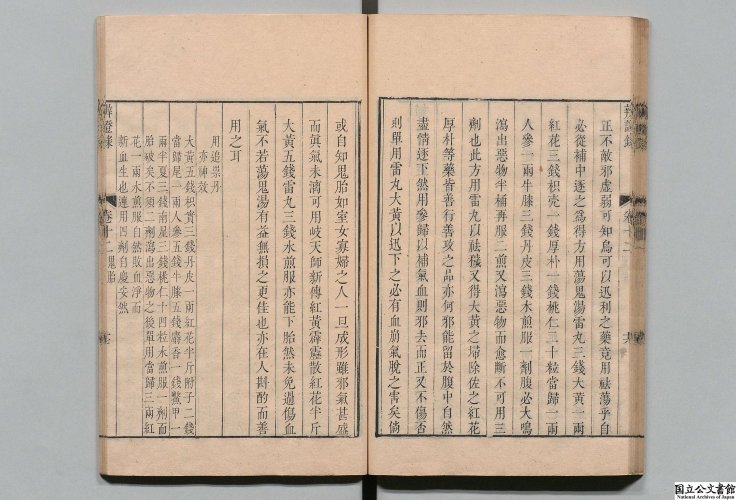 正不敵邪虛弱可知烏可以迅利之藥竟用祛蕩乎自
必從補中逐之為得方用蕩鬼湯雷丸三錢大黃一兩
紅花三錢枳壳一錢厚朴一錢桃仁二十粒當歸一兩
人參一兩牛膝三錢丹皮三錢水煎服一劑腹必大鳴
瀉出惡物半桶再服二煎又瀉惡物而愈斷不可用三
劑也此方用雷丸以祛穢又得大黃之埽除佐之紅花
厚朴等藥皆善行善攻之品亦何邪能留於腹中自然
盡情逐下然用參歸以補氣血則邪去而正又不傷否
則單用雷丸大黃以迅下之必有血崩氣脫之害矣倘
或自知鬼胎如室女寡婦之人一旦成形雖邪氣甚盛
而眞氣未漓可用岐天師新傳紅黃霹靂散紅花半斤
大黃五錢雷丸三錢水煎服亦能下胎然未免過傷血
氣不若蕩鬼湯有益無損之更佳也亦在人斟酌而善
用之耳
用追祟丹
亦神效
大黃五錢枳實三錢丹皮一兩紅花半斤附子二錢
當歸尾一兩人參五錢牛膝五錢麝香一錢鱉甲一
兩半夏三錢南星三錢桃仁十四粒水煎服一劑而
胎破矣不須二劑瀉出惡物之後單用當歸三兩紅
花一兩水煎服自然敗血淨而
新血生也連用四劑自慶安然
辨證錄
卷十二鬼胎
辨證錄
卷十二
国立公文書館
National Archives of Japan